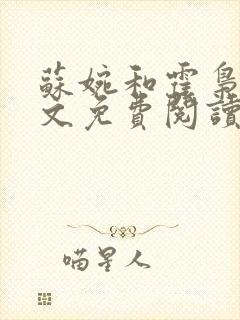 蘇婉和霆梟
文免費閱讀
喵星人